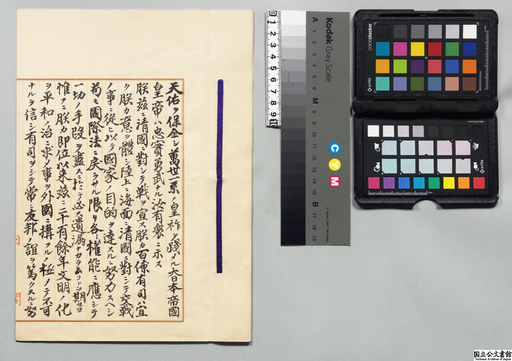 天佑ヲ保全シ萬世一系ノ皇祚ヲ踐メル大日本帝國
皇帝ハ忠實勇武ナル汝有衆ニ示ス
朕茲ニ清國ニ對シテ戰ヲ宣ス朕カ百僚有司ハ宜
ク朕カ意ヲ體シ陸上ニ海面ニ清國ニ對シテ交戰
ノ事ニ從ヒ以テ國家ノ目的ヲ達スルニ努力スヘシ
苟モ國際法ニ戻ラサル限リ各々權能ニ應シテ
一切ノ手段ヲ盡スニ於テ必ス遺漏ナカラムコトヲ期セヨ
惟フニ朕カ即位以來茲ニ二十有餘年文明ノ化
ヲ平和ノ治ニ求メ事ヲ外國ニ構フルノ極メテ不可
ナルヲ信シ有司ヲシテ常ニ友邦ノ誼ヲ篤クスルニ努
Kodak Gray Scale
A
M
B
C
Y
M
colorchecker
国立公文書館
National Archives of Japan